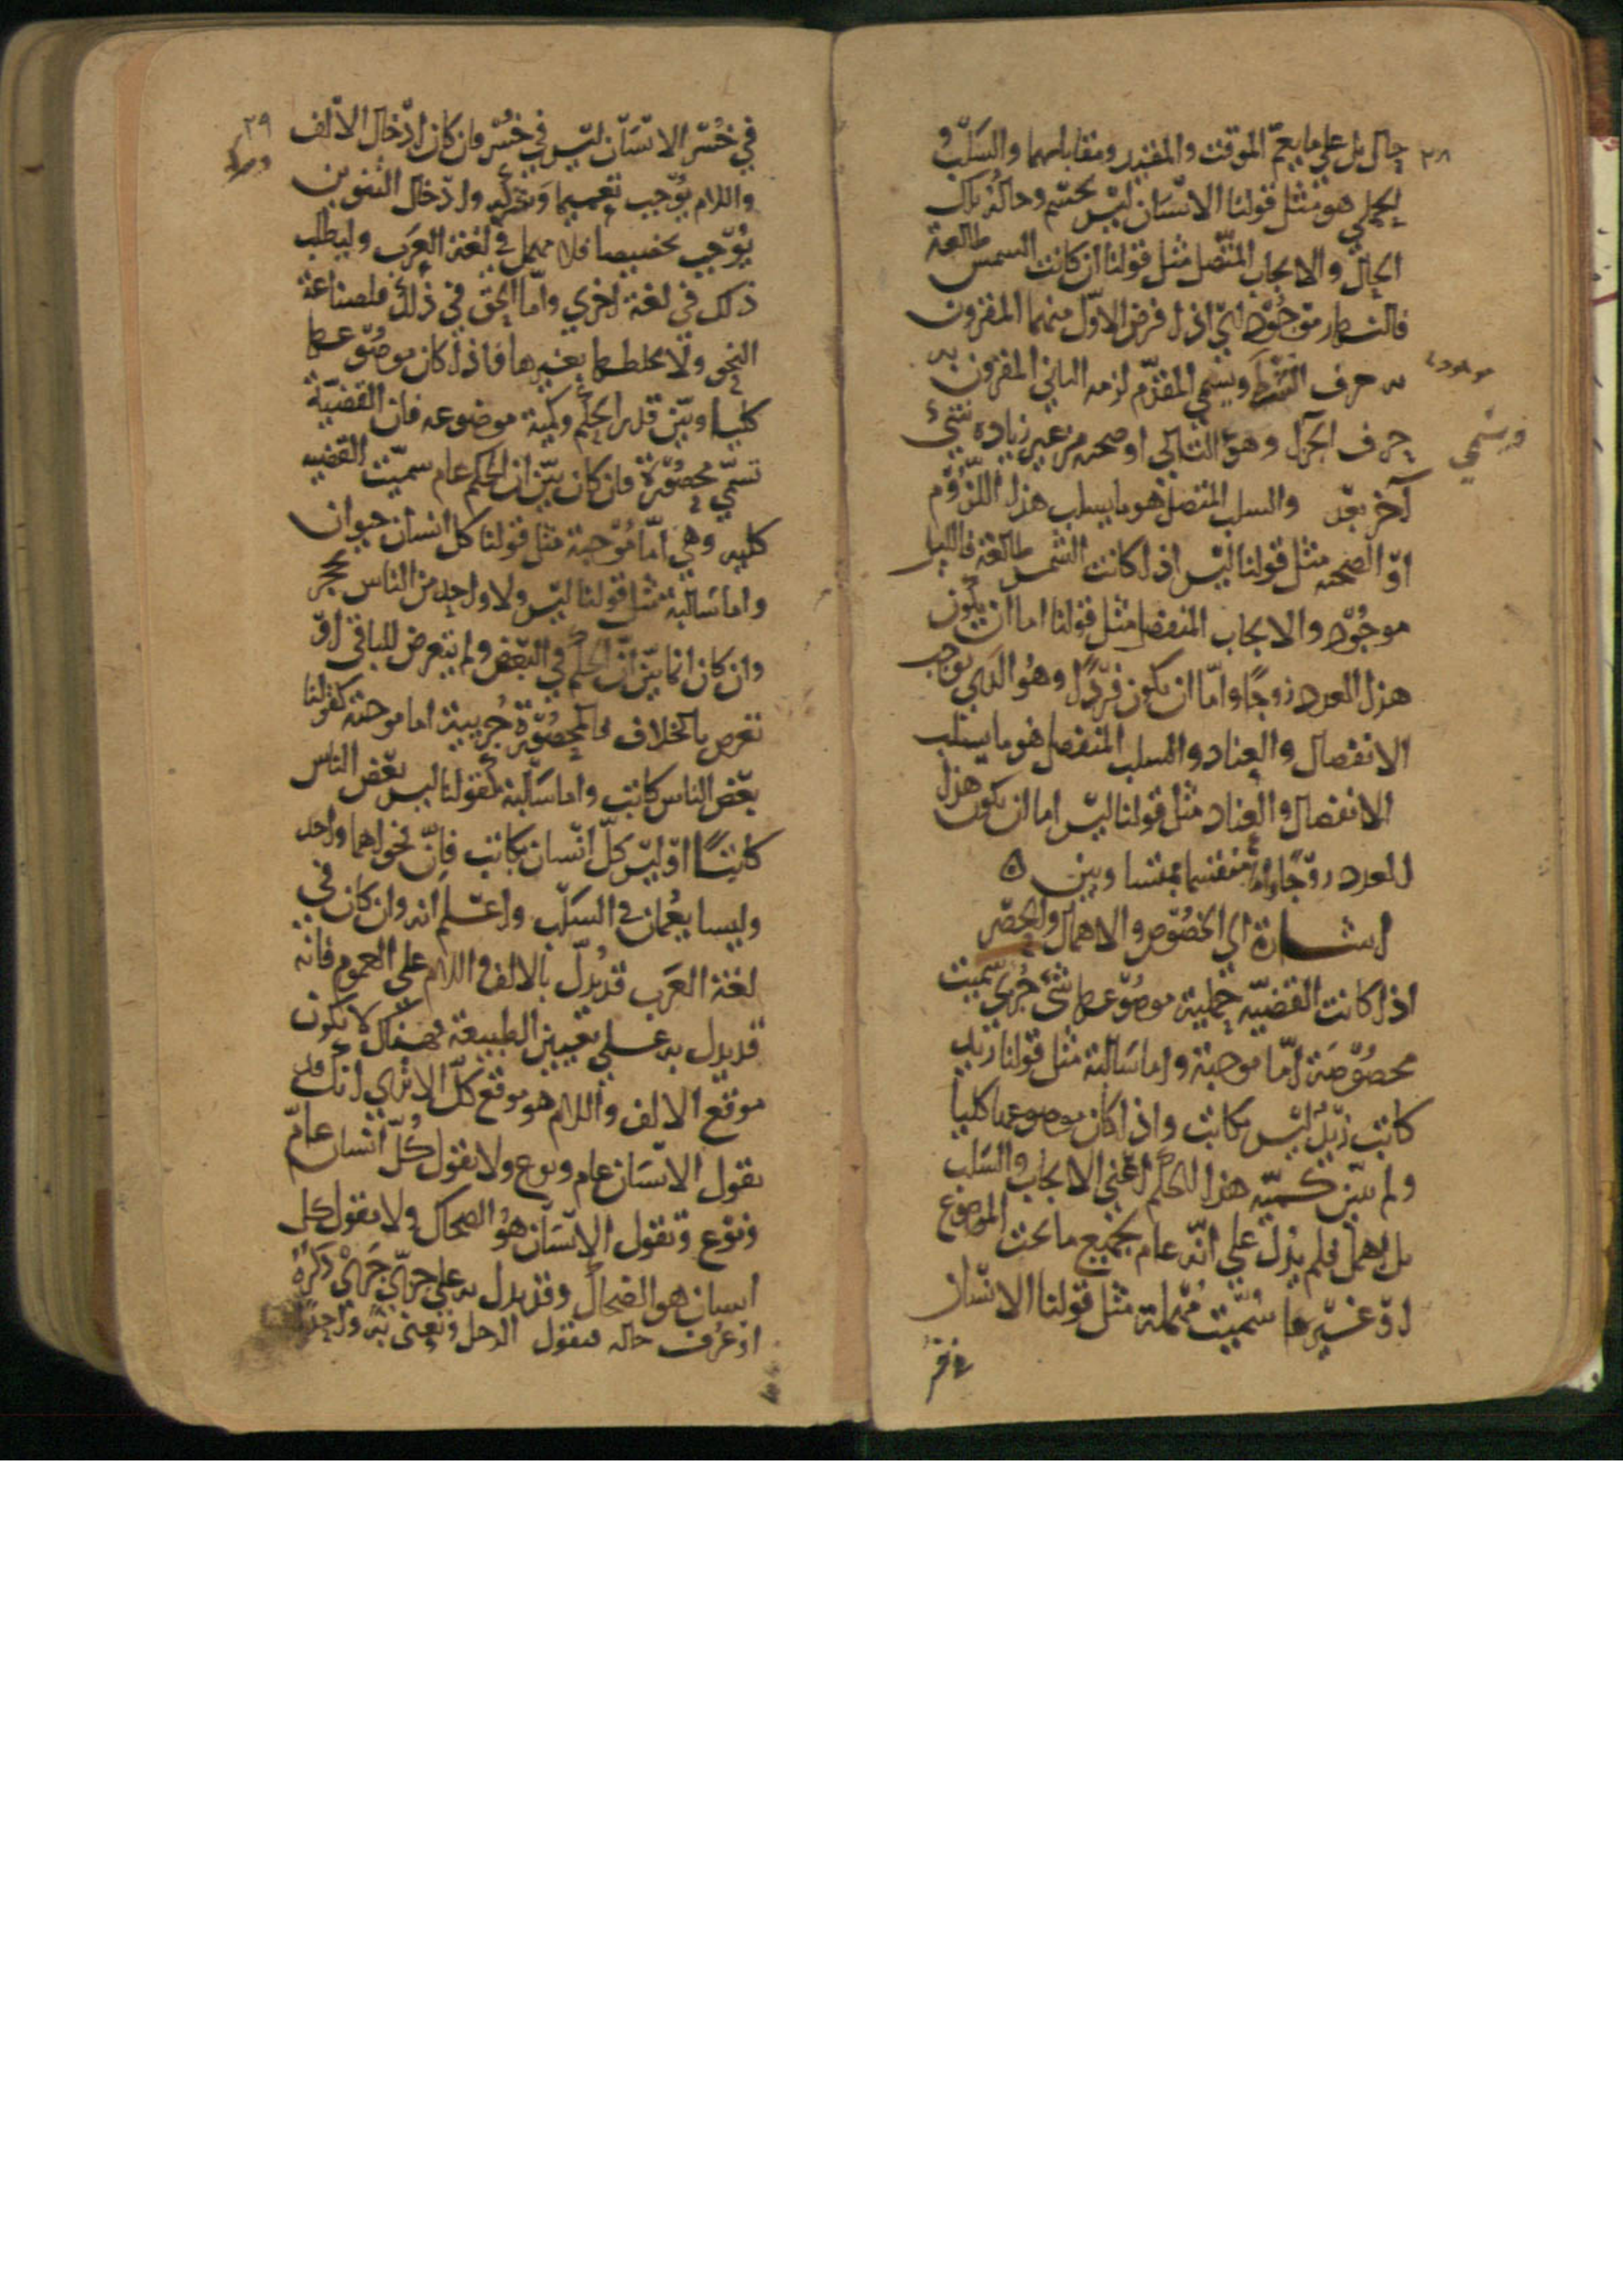 ٢٨
حال بل على ما يعم الموقت والمقيد ومقابلهما والسلب
الحملي هو مثل قولنا الانسان ليس بجسم وحاله تلك
الحال والايجاب المتصل مثل قولنا ان كانت الشمس طالعة
فالنهار موجود اي اذا فرض الاول منهما المقرون
به حرف الشرط ويسمى المقدم لزمه التالي المقرون به
حرف الجزا وهو التالي او صحبه من غير زيادة شيء
ويسمى
آخر بعد والسلب المتصل هو ما يسلب هذا اللزوم
او الصحبة مثل قولنا ليس اذا كانت الشمس طالعة فالليل
موجود والايجاب المنفصل مثل قولنا اما ان يكون
هذا العدد زوجا واما ان يكون فردا وهو الذي يوجب
الانفصال والعناد والسلب المنفصل هو ما يسلب
الانفصال والعناد مثل قولنا ليس اما ان يكون هذا
العدد زوجا واما منقسما بمتساويين ه
اشارة الى الخصوص والاهمال والحصر
اذا كانت القضية حملية موضوعها شيء جزئي سميت
مخصوصة اما موجبة واما سالبة مثل قولنا زيد
كاتب زيد ليس بكاتب واذا كان موضوعها كليا
ولم تبين كمية هذا الحكم اعني الايجاب والسلب
بل اهمل فلم يدل على انه عام لجميع ما تحت الموضوع
او غير عام سميت مهملة مثل قولنا الانسان
في خسر
٢٩
في خسر الانسان ليس في خسر وان كان ادخال الالف
واللام يوجب تعميما وشركة وادخال التنوين
يوجب تخصيصا فلا مهمل في لغة العرب وليطلب
ذلك في لغة اخرى واما الحق في ذلك فلصناعة
النحو ولا يخلطها بغيرها فاذا كان موضوعها
كليا وبين قدر الحكم وكمية موضوعه فان القضية
تسمى محصورة فان كان بين ان الحكم عام سميت القضيه
كليه وهي اما موجبة مثل قولنا كل انسان حيوان
واما سالبة مثل قولنا ليس ولا واحد من الناس بحجر
وان كان انما بين ان الحكم في البعض ولم يتعرض للباقي او
تعرض بالخلاف فالمحصورة جزئية اما موجبة كقولنا
بعض الناس كاتب واما سالبة كقولنا ليس بعض الناس
كاتبا او ليس كل انسان بكاتب فان فحواهما واحد
وليسا يعمان في السلب واعلم انه وان كان في
لغة العرب قد يدل بالالف واللام على العموم فانه
قد يدل به على تعيين الطبيعة فهناك لا يكون
موقع الالف واللام هو موقع كل الا ترى انك قد
تقول الانسان عام ونوع ولا تقول كل انسان عام
ونوع وتقول الانسان هو الضحاك ولا تقول كل
انسان هو الضحاك وقد يدل به على جزئي جرى ذكره
او عرف حاله فتقول الرجل وتعني به واحدا